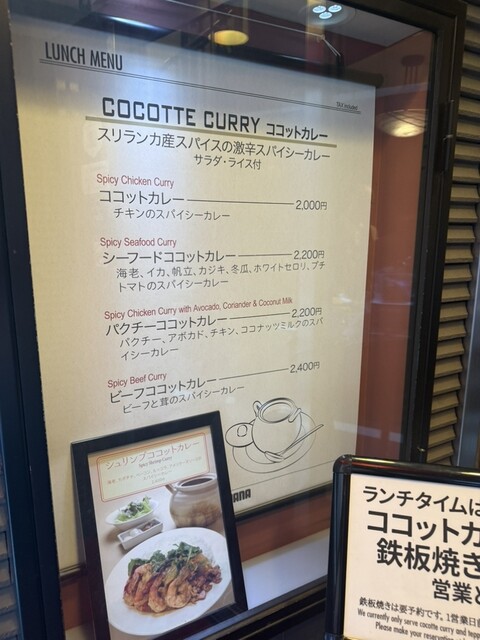 LUNCH MENU
TAX included
COCOTTE CURRY ココットカレー
スリランカ産スパイスの激辛スパイシーカレー
サラダ・ライス付
Spicy Chicken Curry
ココットカレー 2,000円
チキンのスパイシーカレー
Spicy Seafood Curry
シーフードココットカレー 2,200円
海老、イカ、帆立、カジキ、冬瓜、ホワイトセロリ、プチ
トマトのスパイシーカレー
Spicy Chicken Curry with Avocado, Coriander & Coconut Milk
パクチーココットカレー 2,200円
パクチー、アボカド、チキン、ココナッツミルクのスパ
イシーカレー
Spicy Beef Curry
ビーフココットカレー 2,400円
ビーフと茸のスパイシーカレー
シュリンプココットカレー
Spicy Shrimp Curry
ランチタイムは
ココットカ
鉄板焼き
営業と
鉄板焼きは要予約です。1営業日前
We currently only serve cocotte curry and
Please make your reservation